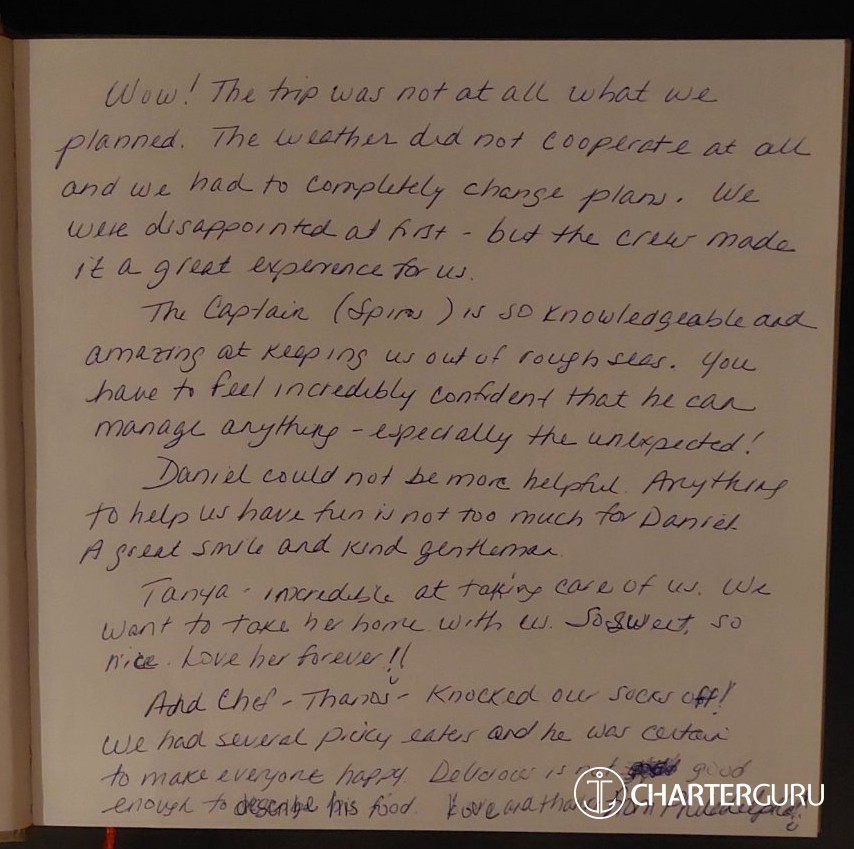 Wow! The trip was not at all what we
planned. The weather did not cooperate at all
and we had to completely change plans. We
were disappointed at first - but the crew made
it a great experience for us.
The Captain (Spiros) is so knowledgeable and
amazing at keeping us out of rough seas. You
have to feel incredibly confident that he can
manage anything - especially the unexpected!
Daniel could not be more helpful. Anything
to help us have fun is not too much for Daniel.
A great smile and kind gentleman.
Tanya - incredible at taking care of us. We
want to take her home with us. So sweet, so
nice. Love her forever!!
And Chef - Thanos - Knocked our socks off!
We had several picky eaters and he was certain
to make everyone happy. Delicious is not good
enough to describe his food. Love and thanks from Philadelphia!
CHARTERGURU